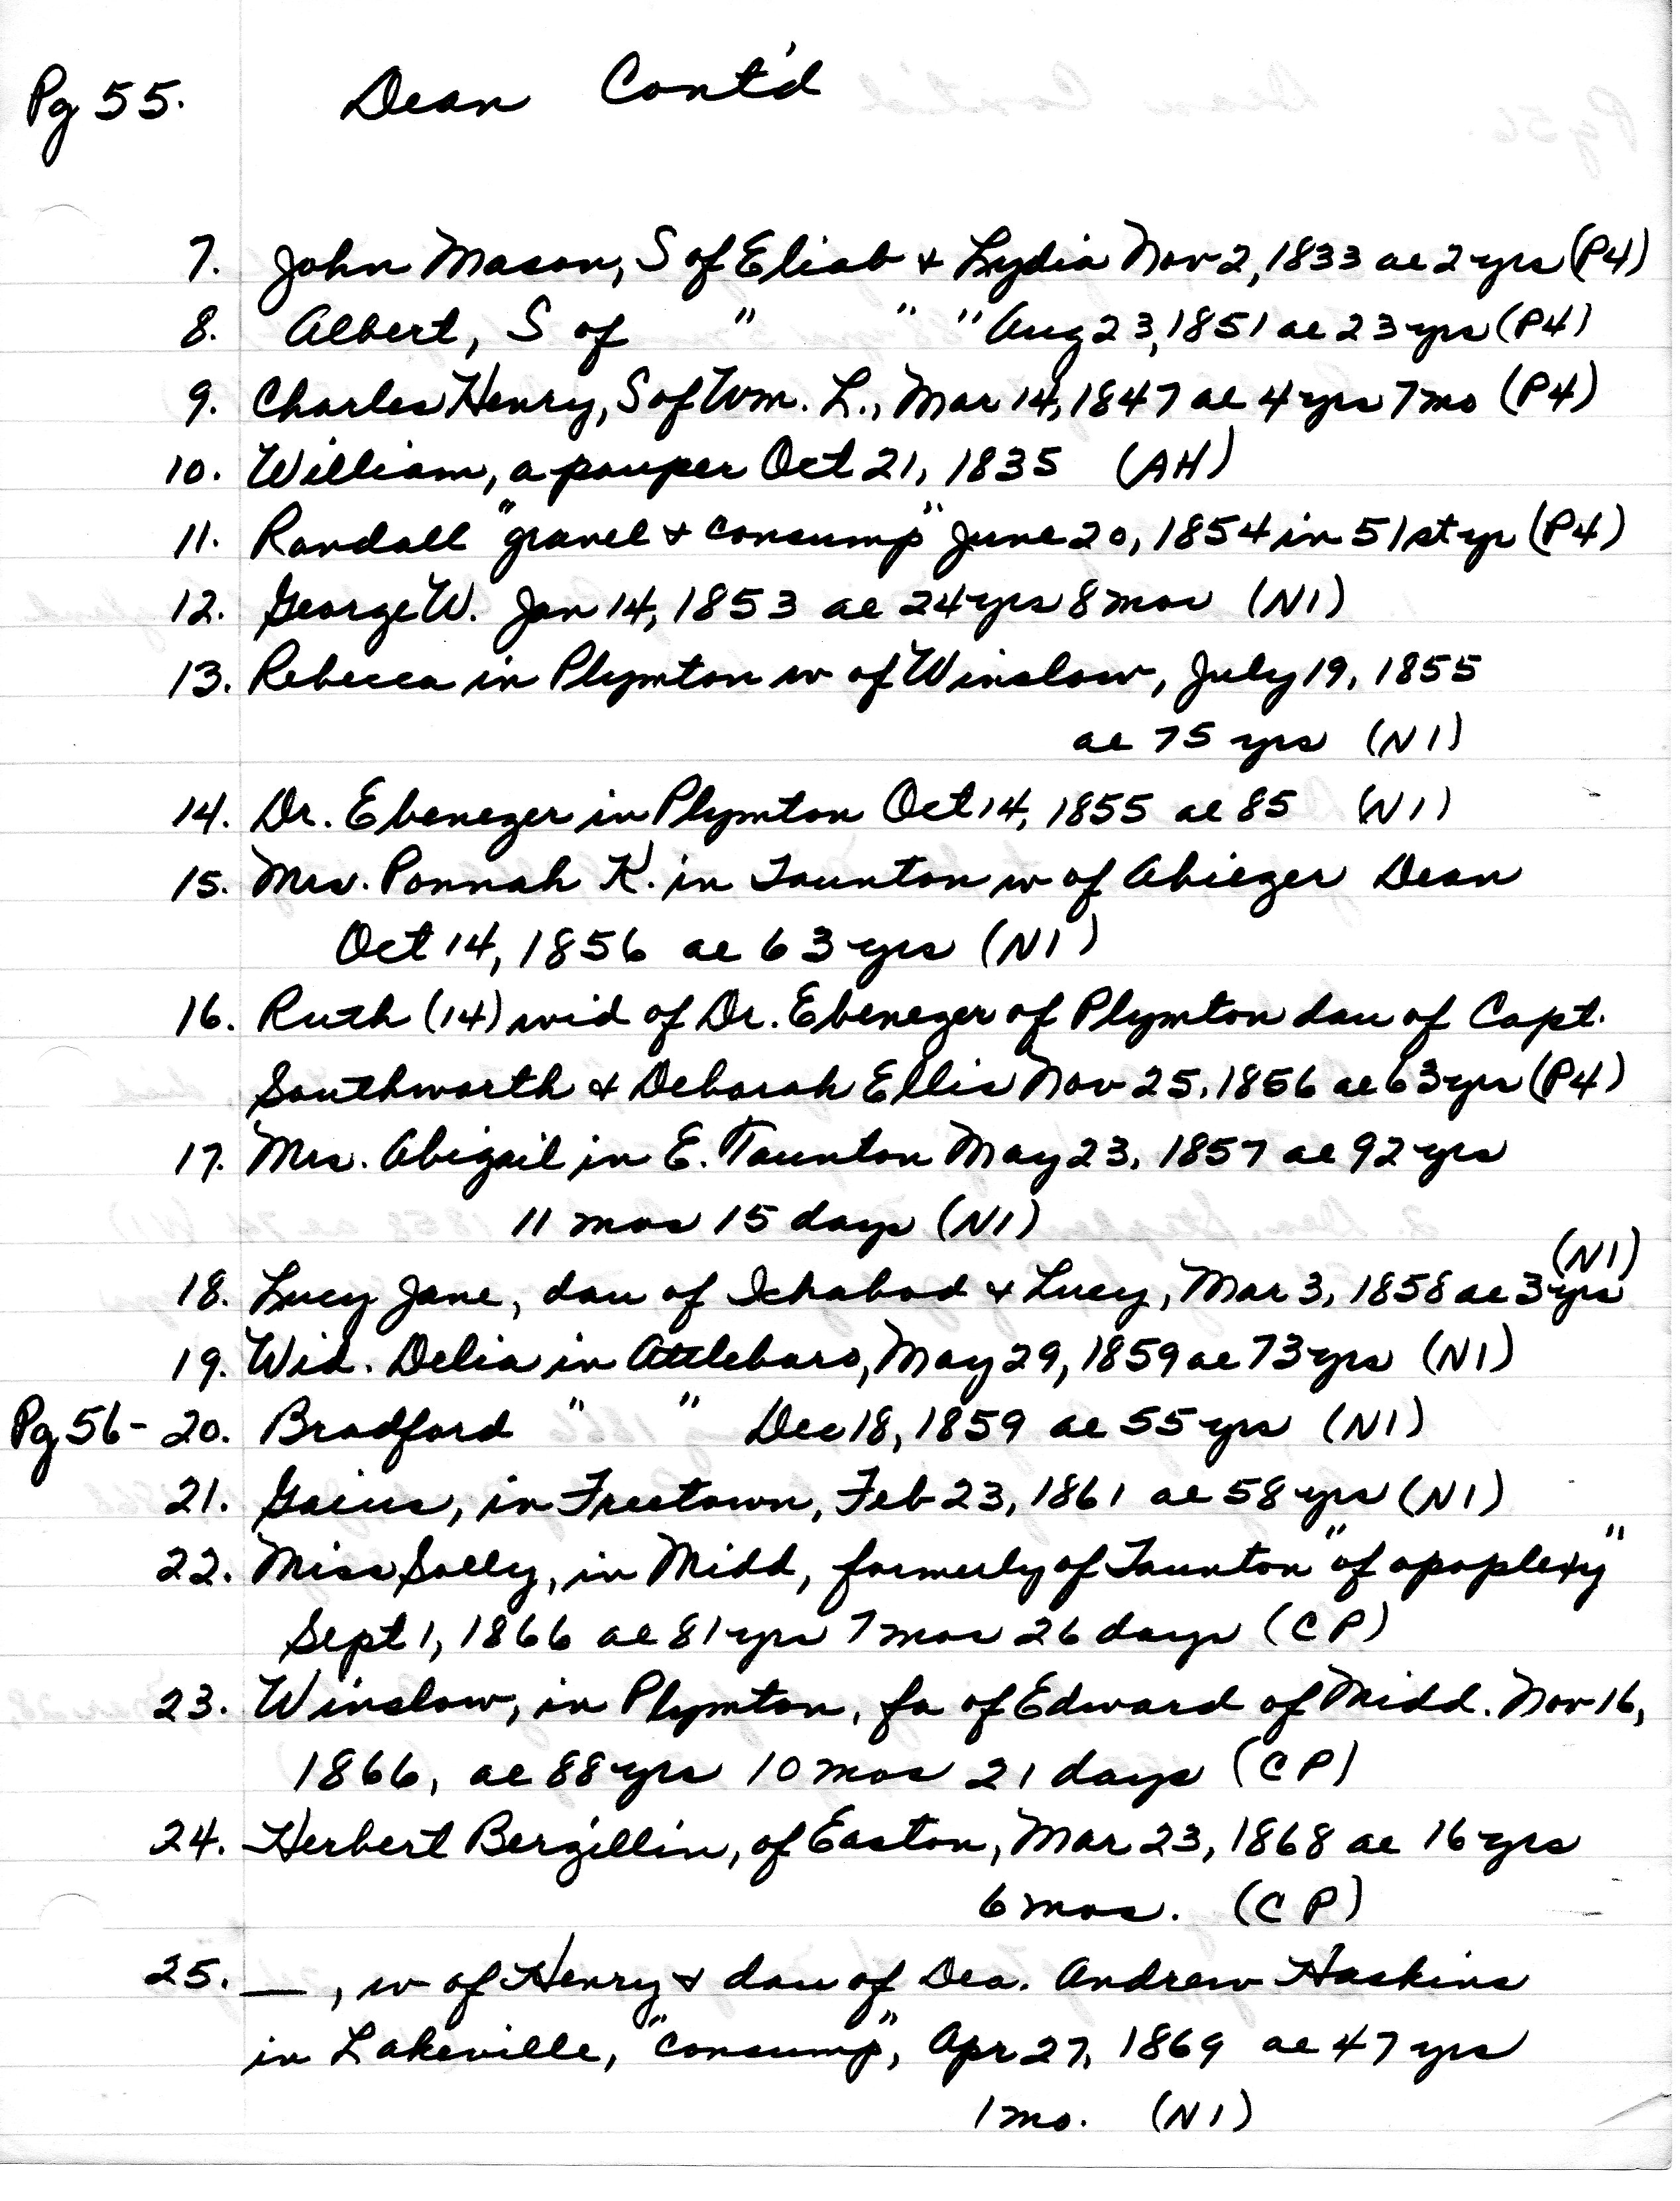 Pg 55. Dean Cont'd
7. John Mason, S of Eliab + Lydia Nov 2, 1833 ae 2 yrs (P4)
8. Albert, S of " " " Aug 23, 1851 ae 23 yrs (P4)
9. Charles Henry, S of Wm. L., Mar 14, 1847 ae 4 yrs 7 mo (P4)
10. William, a pauper Oct 21, 1835 (AH)
11. Randall "gravel + consump" June 20, 1854 in 51st yr (P4)
12. George W. Jan 14, 1853 ae 24 yrs 8 mos (N1)
13. Rebecca in Plymton w of Winslow, July 19, 1855
ae 75 yrs (N1)
14. Dr. Ebenezer in Plymton Oct 14, 1855 ae 85 (N1)
15. Mrs. Ponnah K. in Taunton w of Abiezer Dean
Oct 14, 1856 ae 63 yrs (N1)
16. Ruth (14) wid of Dr. Ebenezer of Plymton dau of Capt.
Southworth + Deborah Ellis Nov 25, 1856 ae 63 yrs (P4)
17. Mrs. Abigail in E. Taunton May 23, 1857 ae 92 yrs
11 mos 15 days (N1)
18. Lucy Jane, dau of Ichabod + Lucy, Mar 3, 1858 ae 3 yrs (N1)
19. Wid. Delia in Attleboro, May 29, 1859 ae 73 yrs (N1)
Pg 56 - 20. Bradford " " Dec 18, 1859 ae 55 yrs (N1)
21. Gaius, in Freetown, Feb 23, 1861 ae 58 yrs (N1)
22. Miss Sally, in Midd, formerly of Taunton "of apoplexy"
Sept 1, 1866 ae 81 yrs 7 mos 26 days (CP)
23. Winslow, in Plymton, fa of Edward of Midd. Nov 16,
1866, ae 88 yrs 10 mos 21 days (CP)
24. Herbert Berzillin, of Easton, Mar 23, 1868 ae 16 yrs
6 mos. (CP)
25. —, w of Henry + dau of Dea. Andrew Haskins
in Lakeville, "consump", Apr 27, 1869 ae 47 yrs
1 mo. (N1)